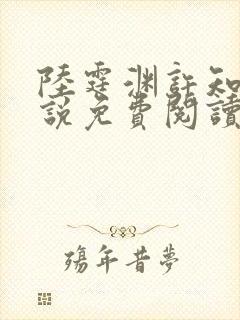 陸霆渊許知
説免費閱讀
殤年昔夢